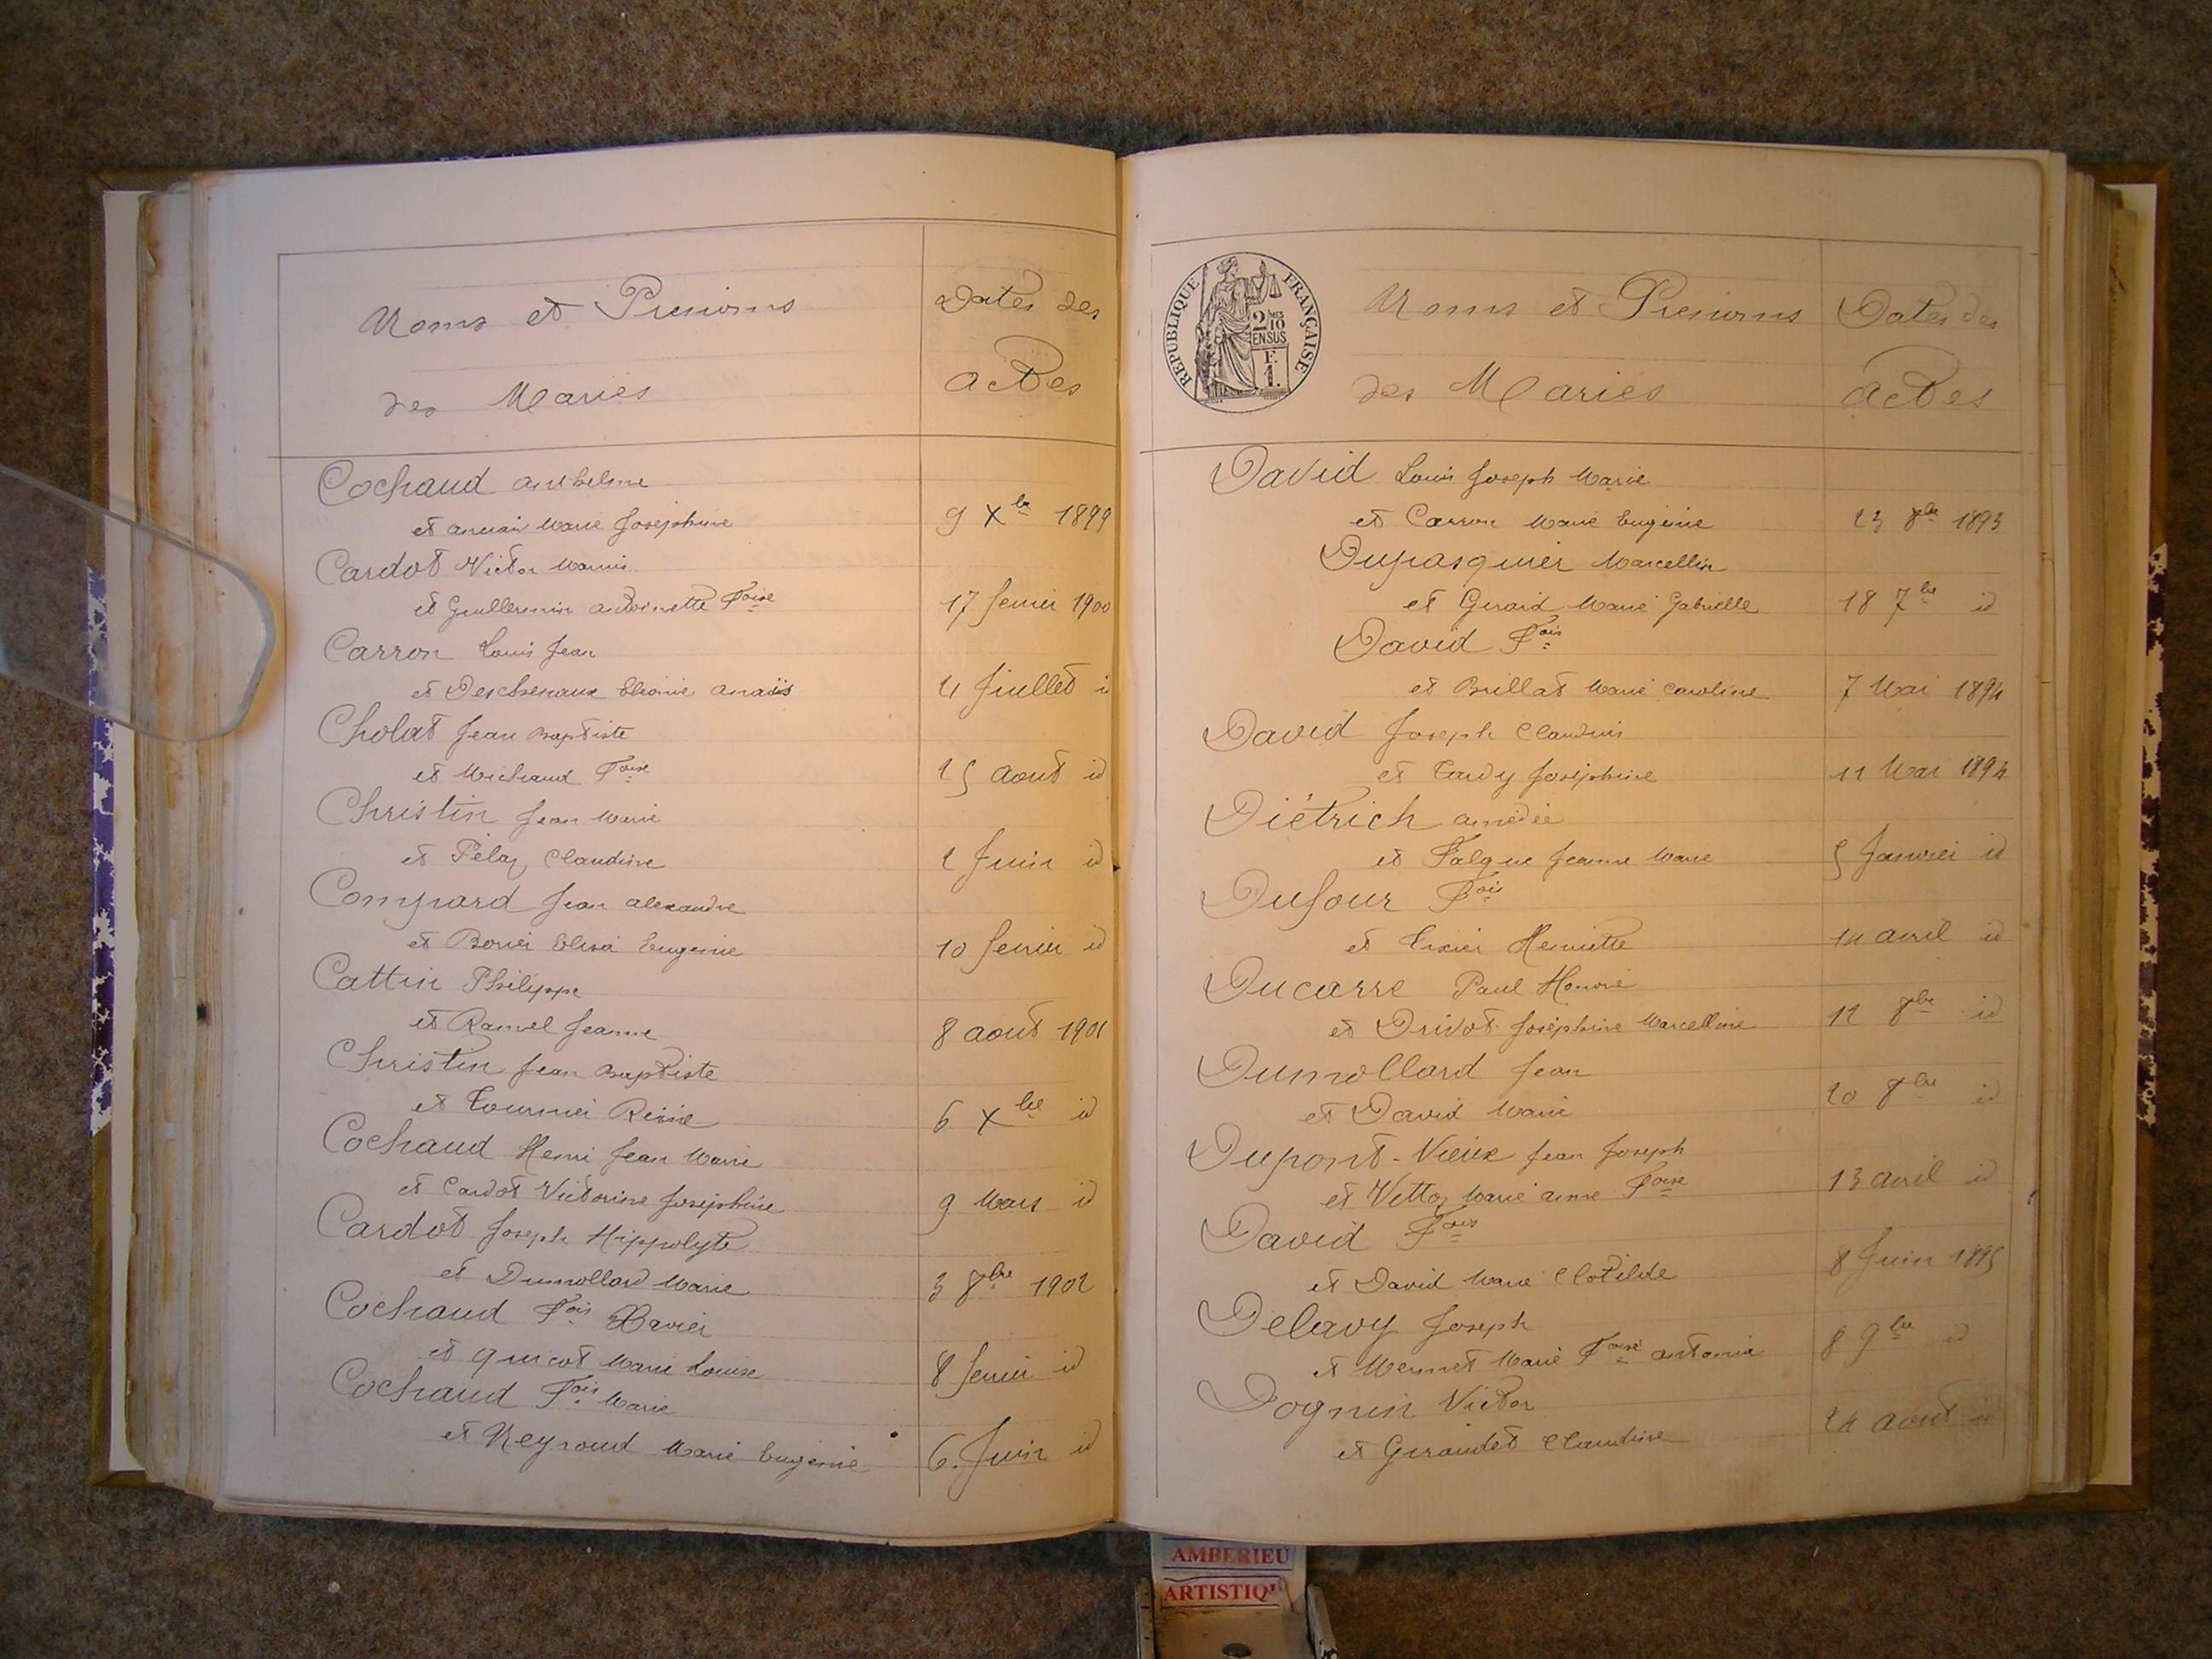 Noms et Prenoms
Dates des
des Mariés
actes
Cochaud anthelme
et Marie Joséphine 9 Xbre 1899
Cardot Victor Marius
et Guillermin antoinette Foise 17 fevrier 1900
Carron Louis Jean
et Deschenaux anaïs 4 Juillet id
Cholat Jean Baptiste
et Michaud Foise 25 aout id
Christin Jean Marie
et Pélaz Claudine 2 Juin id
Compard Jean alexandre
et Elisa Eugenie 10 fevrier id
Cattin Philippe
et Ramel Jeanne 8 aout 1901
Christin Jean Baptiste
et Tournier Reine 6 Xbre id
Cochaud Henri Jean Marie
et Cardot Victorine Joséphine 9 Mars id
Cardot Joseph Hippolyte
et Dumollard Marie 3 8bre 1902
Cochaud Fois Xavier
et Marie Louise 8 fevrier id
Cochaud Fois Marie
et Neyroud Marie Eugénie 6. Juin id
REPUBLIQUE FRANÇAISE
2/MES
10
EN SUS
F.
1.
Noms et Prenoms
Dates des
des Maries
actes
David Louis Joseph Marie
et Carron Marie Eugénie 23 8bre 1893
Dupasquier Marcellin
et Marie Gabrielle 18 7bre id
David Fois
et Brillat Marie Caroline 7 Mai 1894
David Joseph Claudius
et Tardy Joséphine 11 Mai 1894
Diétrich amédée
et Falque Jeanne Marie 5 Janvier id
Dufour Fois
et Henriette 14 avril id
Ducarre Paul Honoré
et Drivot Joséphine Marcelline 12 8bre id
Dumollard Jean
et David Marie 20 8bre id
Dupont-Vieux Jean Joseph
et Vettoz Marie anne Foise 13 avril id
David Fois
et David Marie Clotilde 8 Juin 1895
Delavy Joseph
et Marie Foise antonia 8 9bre id
Dognin Victor
et Giraudet Claudine 24 aout id
AMBERIEU
ARTISTIQ